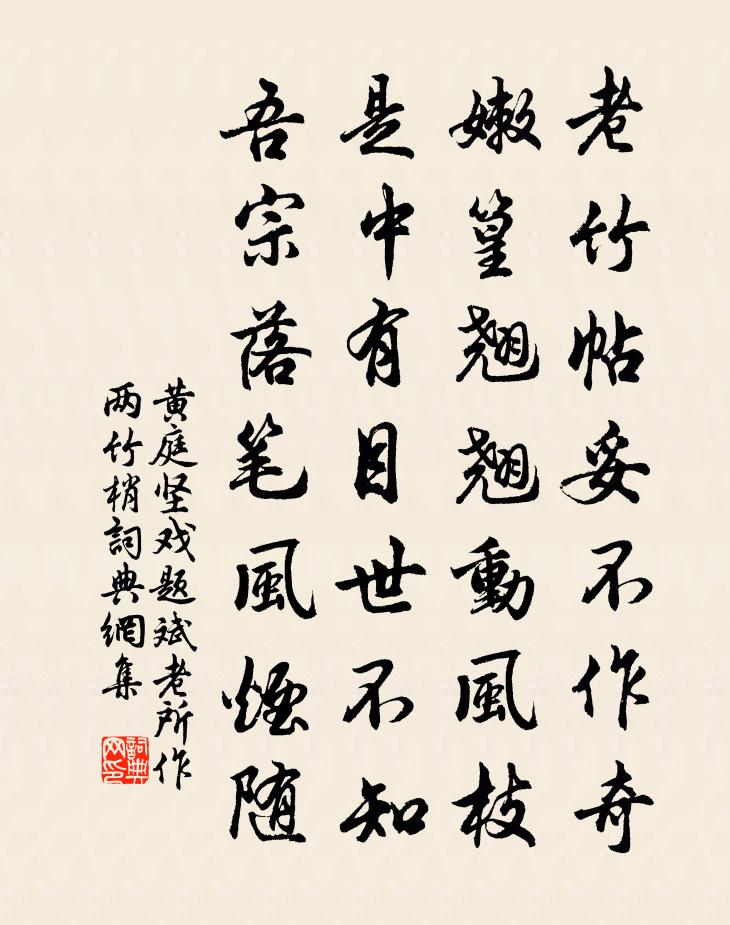 老竹帖妥不作奇
嫩篁翘翘動風枝
是中有目世不知
吾宗落笔風煙随
黄庭坚戏题斌老所作
两竹梢詞典網集
詞典网印